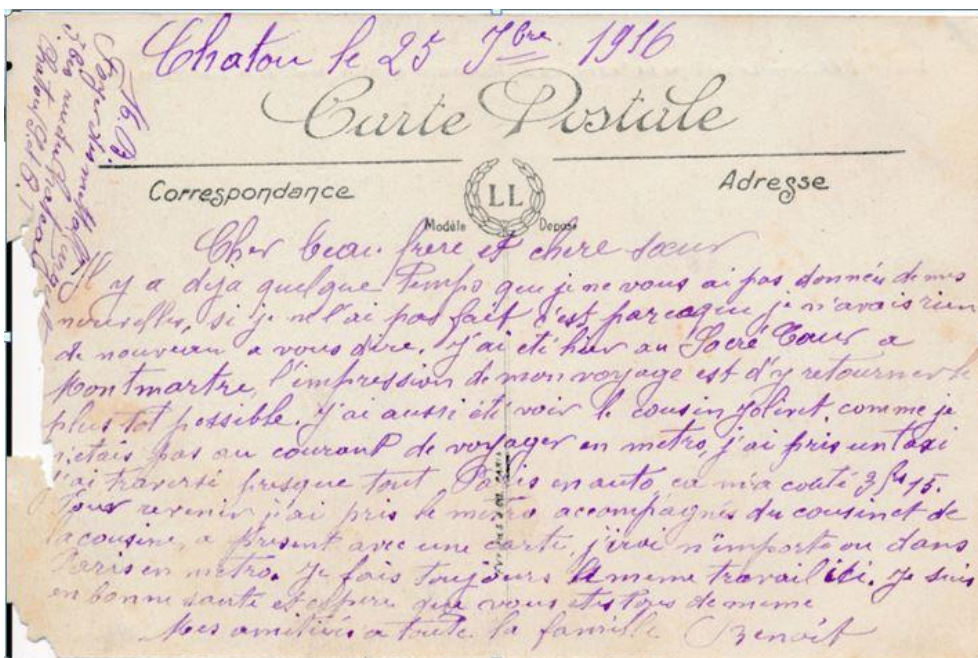 Chatou le 25 7bre 1916
Carte Postale
Correspondance
Adresse
LL
Modèle Deposé
Cher beau frère et chère sœur
Il y a déja quelque temps que je ne vous ai pas données de mes
nouvelles, si je ne l'ai pas fait c'est parceque je n'avais rien
de nouveau a vous dire. J'ai eté hier au Sacré Cœur a
Montmartre, l'impression de mon voyage est d'y retourner le
plus tot possible. J'ai aussi été voir le cousin Jolivet, comme je
n'etais pas au courant de voyager en metro, j'ai pris un taxi
j'ai traversé presque tout Paris en auto, ca m'a couté 3frs 15.
Pour revenir j'ai pris le metro accompagnés du cousin et de
la cousine, a présent avec une carte, j'irai n'importe ou dans
Paris en metro. Je fais toujours le meme travail ici. Je suis
en bonne santé et espere que vous etes tous de meme
Mes amitiés a toute la famille Benoit
16.B.
Chatou